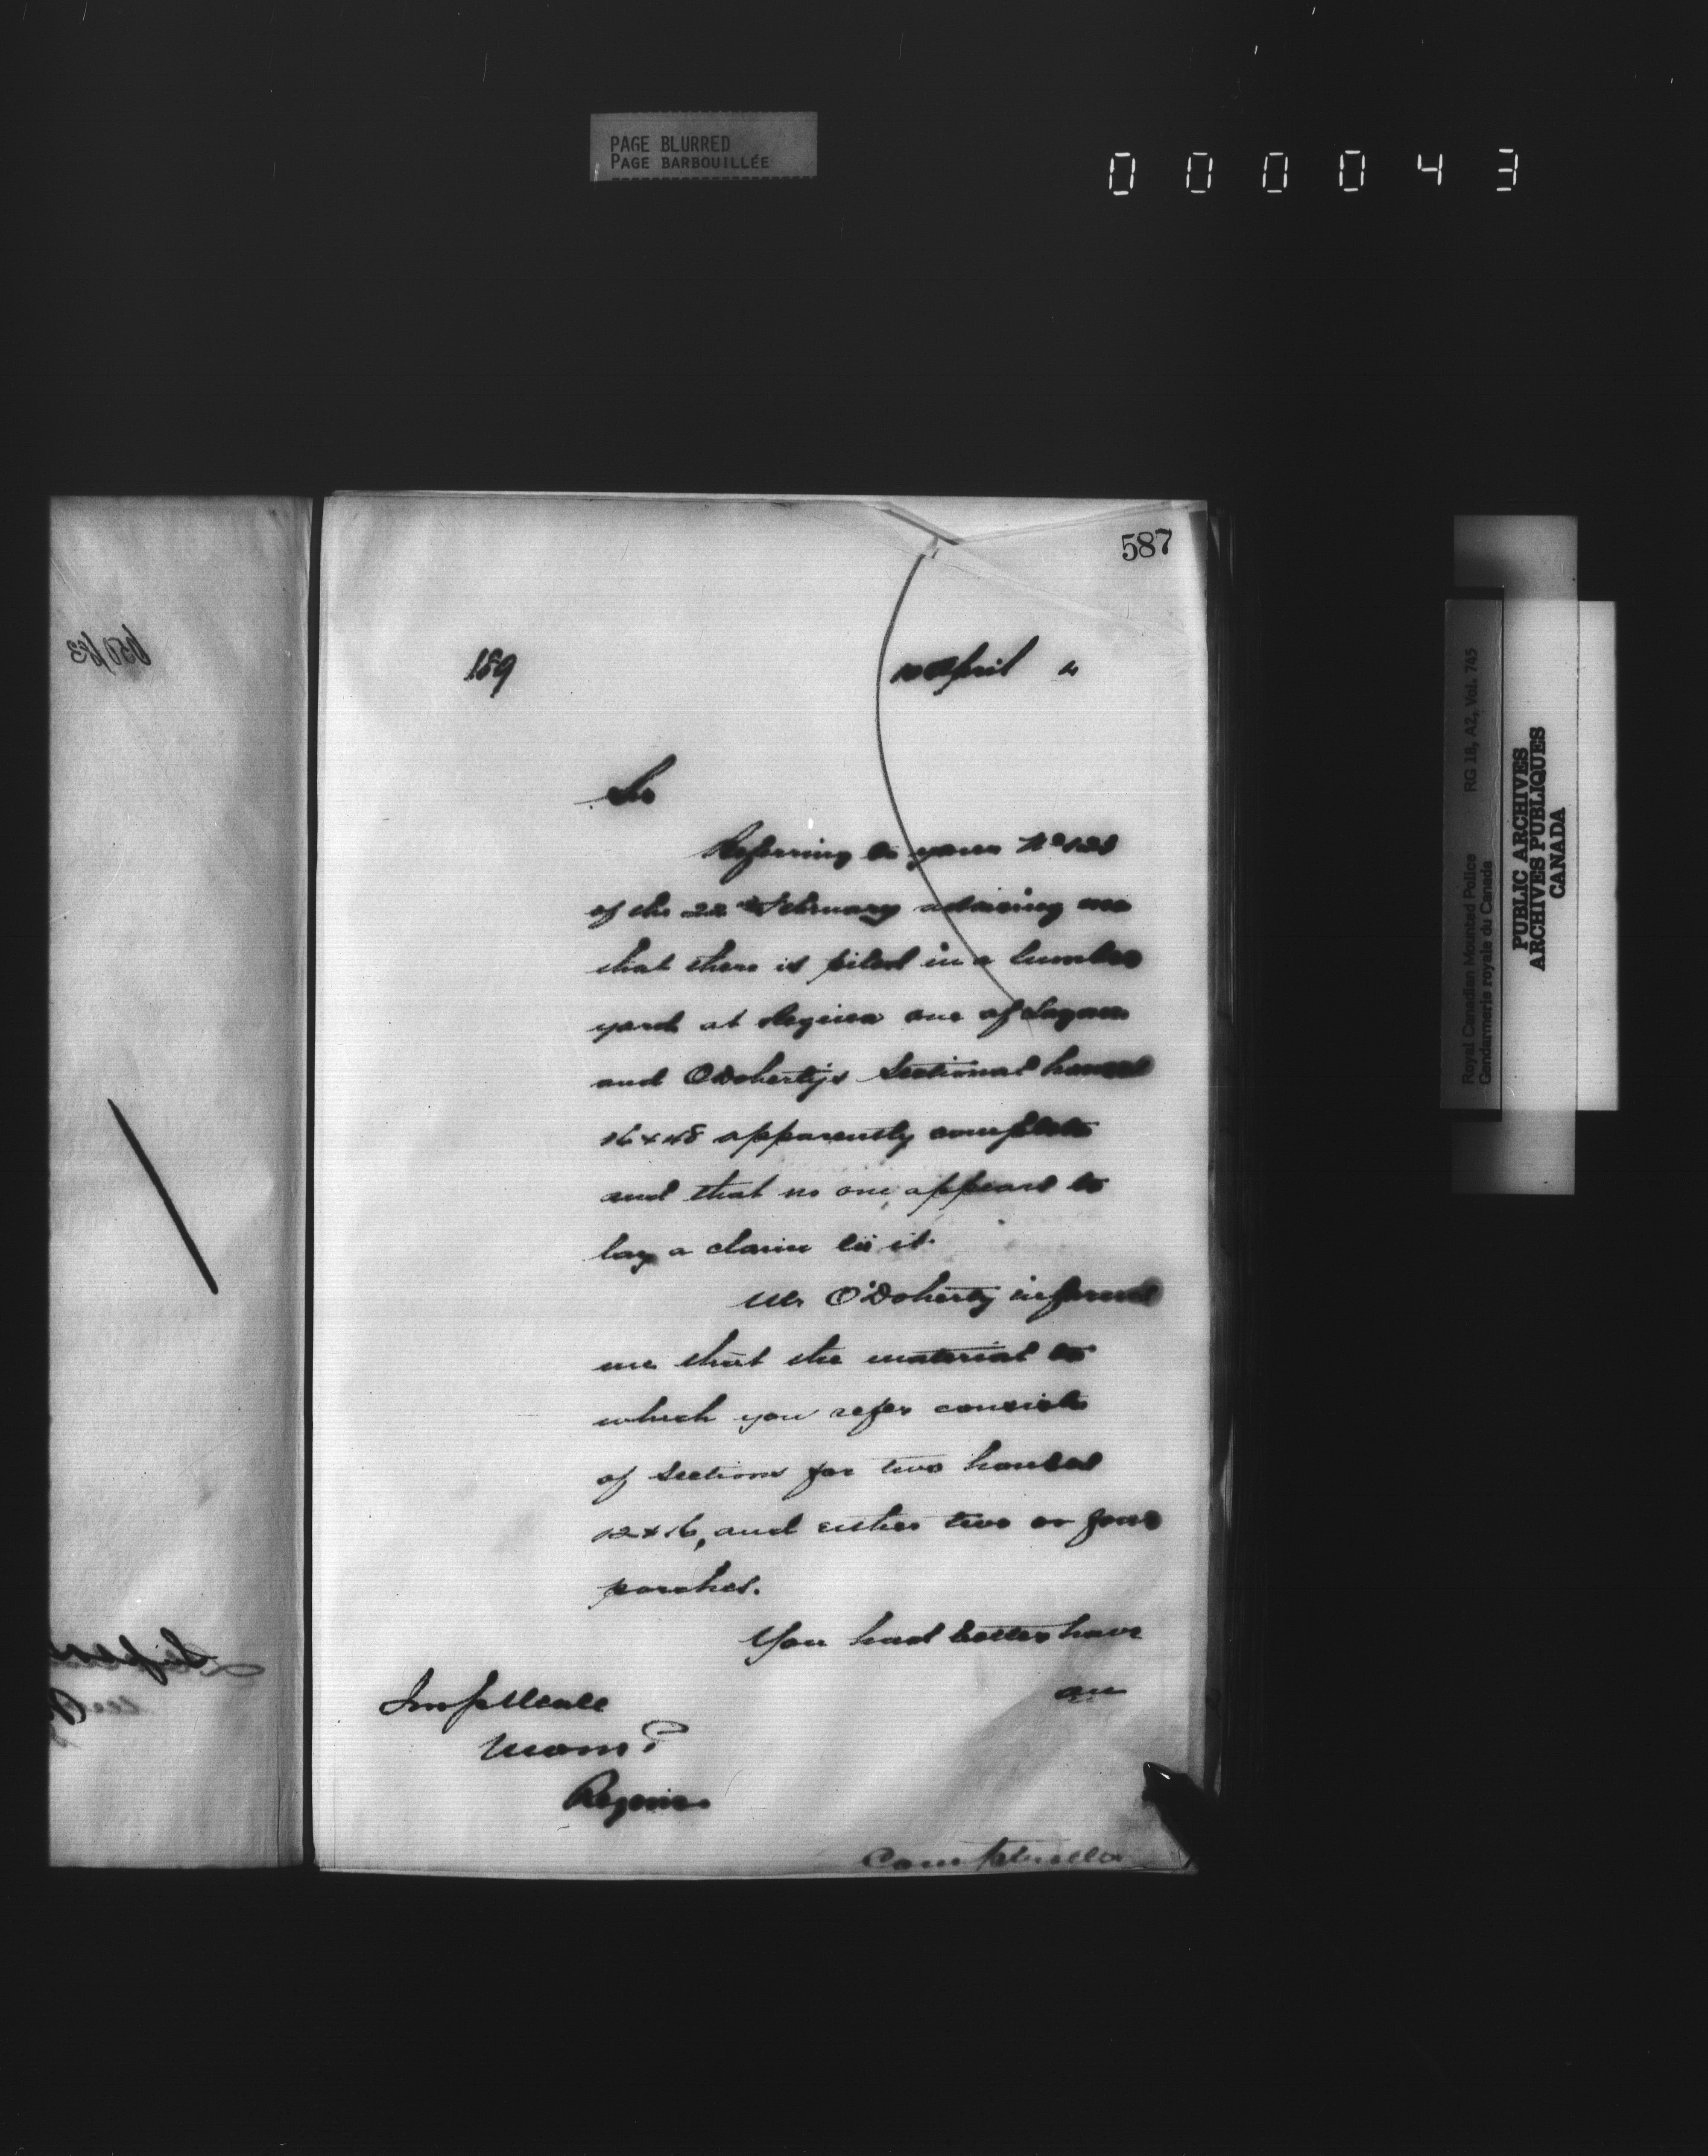 PAGE BLURRED
PAGE BARBOUILLÉE
000043
587
189
10 April 4
Sir
Referring to yours No 121
of the 22nd February advising me
that there is piled in a lumber
yard at Regina one of
and O'Doherty's Sectional houses
16 x 48 apparently complete
and that no one appears to
lay a claim to it.
Mr O'Doherty informs
me that the material to
which you refer consists
of sections for two houses
12 x 16, and either two or four
porches.
You had better have
an
Regina
Comptroller
Royal Canadian Mounted Police RG 18, A2, Vol. 745
Gendarmerie royale du Canada
PUBLIC ARCHIVES
ARCHIVES PUBLIQUES
CANADA